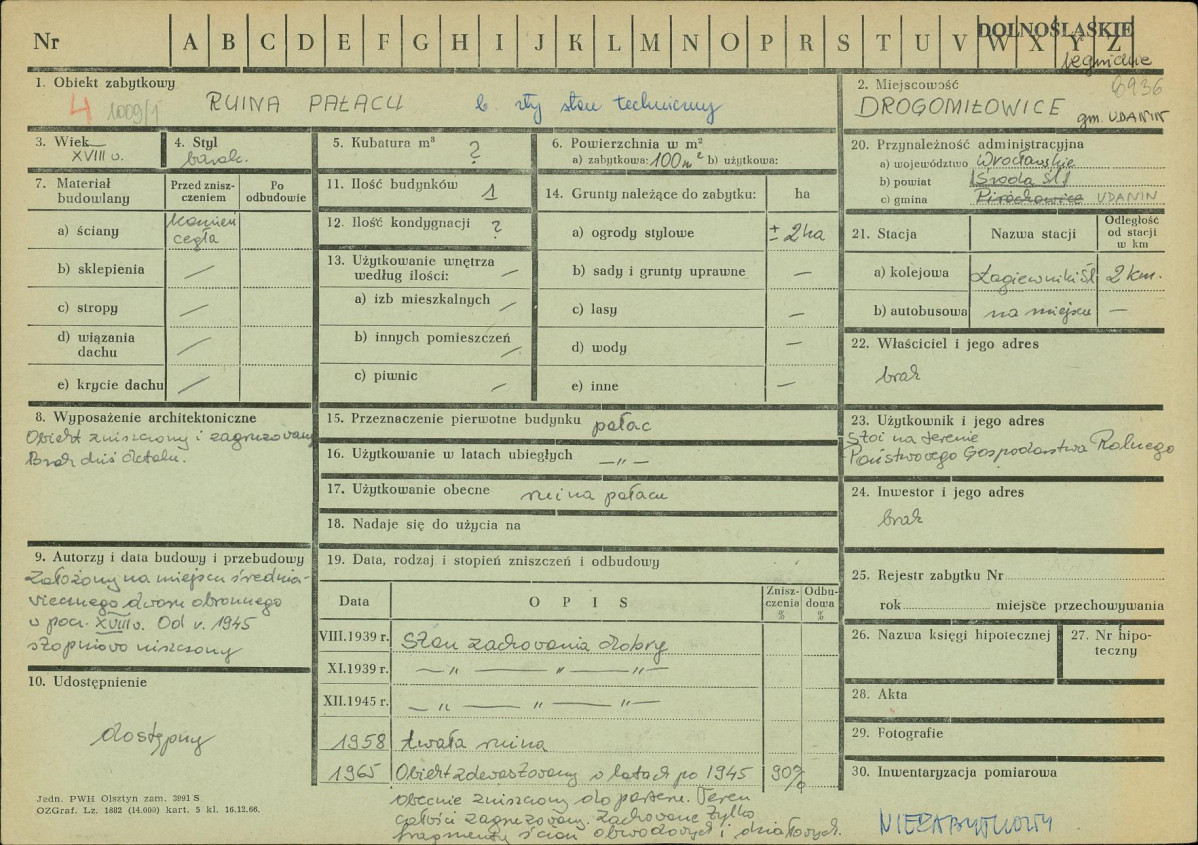 Nr A B C D E F G H I J K L M N O P R S T U V W X Y Z
DOLNOŚLĄSKIE
legnickie
1. Obiekt zabytkowy
4 1009/1 RUINA PAŁACU b. zły stan techniczny
2. Miejscowość
6936
DROGOMIŁOWICE gm. UDANIN
3. Wiek
XVIII w.
4. Styl
barok.
5. Kubatura m³ ?
6. Powierzchnia w m²
a) zabytkowa: 100 m² b) użytkowa:
7. Materiał budowlany
Przed znisz-
czeniem
Po
odbudowie
a) ściany
kamień
cegła
b) sklepienia —
c) stropy —
d) wiązania
dachu —
e) krycie dachu —
8. Wyposażenie architektoniczne
Obiekt zniszczony i zagruzowany
Brak dziś detalu.
9. Autorzy i data budowy i przebudowy
Założony na miejscu średnio-
wiecznego dworu obronnego
w pocz. XVIII w. Od r. 1945
stopniowo niszczony
10. Udostępnienie
dostępny
11. Ilość budynków 1
12. Ilość kondygnacji ?
13. Użytkowanie wnętrza
według ilości: —
a) izb mieszkalnych —
b) innych pomieszczeń —
c) piwnic —
14. Grunty należące do zabytku: ha
a) ogrody stylowe ± 2 ha
b) sady i grunty uprawne —
c) lasy —
d) wody —
e) inne —
15. Przeznaczenie pierwotne budynku pałac
16. Użytkowanie w latach ubiegłych —„—
17. Użytkowanie obecne ruina pałacu
18. Nadaje się do użycia na
19. Data, rodzaj i stopień zniszczeń i odbudowy
Data OPIS Znisz-
czenia
% Odbu-
dowa
%
VIII.1939 r. Stan zachowania dobry
XI.1939 r. —„— —„— —„—
XII.1945 r. —„— —„— —„—
1958 trwała ruina
1965 Obiekt zdewastowany w latach po 1945 90%
obecnie zniszczony do parteru. Teren
całości zagruzowany. Zachowane tylko
fragmenty ścian obwodowych i działowych.
20. Przynależność administracyjna
a) województwo Wrocławskie
b) powiat Środa Śl
c) gmina Piróchowice UDANIN
21. Stacja Nazwa stacji Odległość
od stacji
w km
a) kolejowa Łagiewniki Śl 2 km.
b) autobusowa na miejscu —
22. Właściciel i jego adres
brak
23. Użytkownik i jego adres
Stoi na terenie
Państwowego Gospodarstwa Rolnego
24. Inwestor i jego adres
brak
25. Rejestr zabytku Nr
rok miejsce przechowywania
26. Nazwa księgi hipotecznej
27. Nr hipo-
teczny
28. Akta
29. Fotografie
30. Inwentaryzacja pomiarowa
NIEZABYTKOWY
Jedn. PWH Olsztyn zam. 3991 S
OZGraf. Lz. 1882 (14.000) kart. 5 kl. 16.12.66.